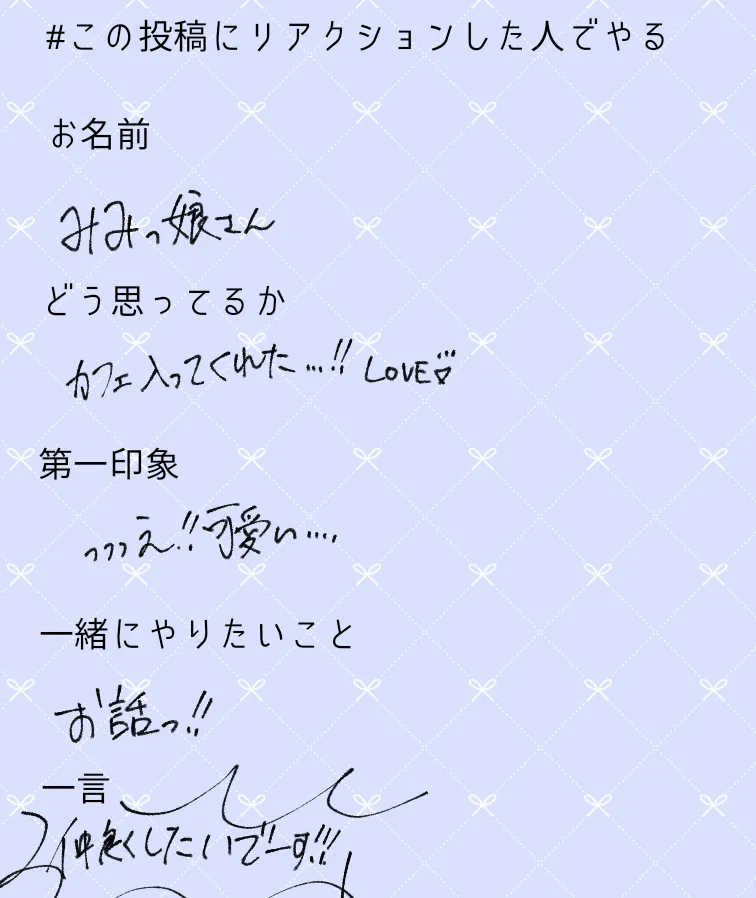 #この投稿にリアクションした人でやる
お名前
みみっ娘さん
どう思ってるか
カフェ入ってくれた…!! LOVE♡
第一印象
っっっえ!!可愛い….
一緒にやりたいこと
お話っ!!
一言
仲良くしたいでーす!!!